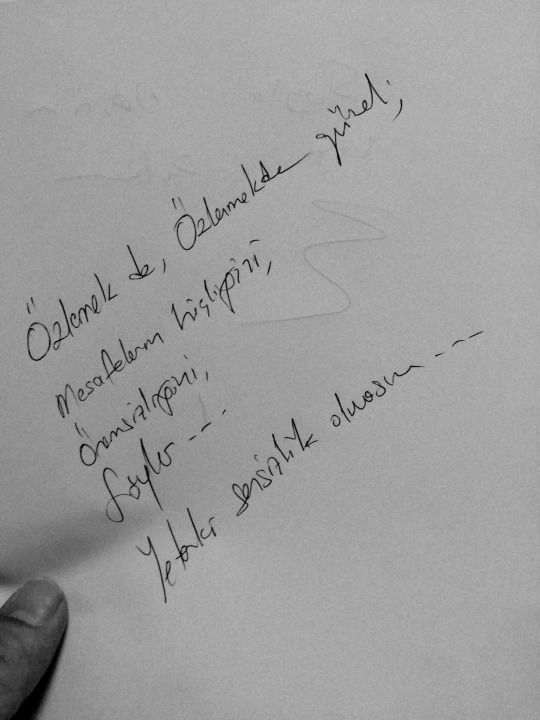 Özlemek de, Özlemekde güzel;
Mesafelerin hiçliğini,
Önemsizliğini,
Söyler ---
Yeterki sensizlik olmasın ---